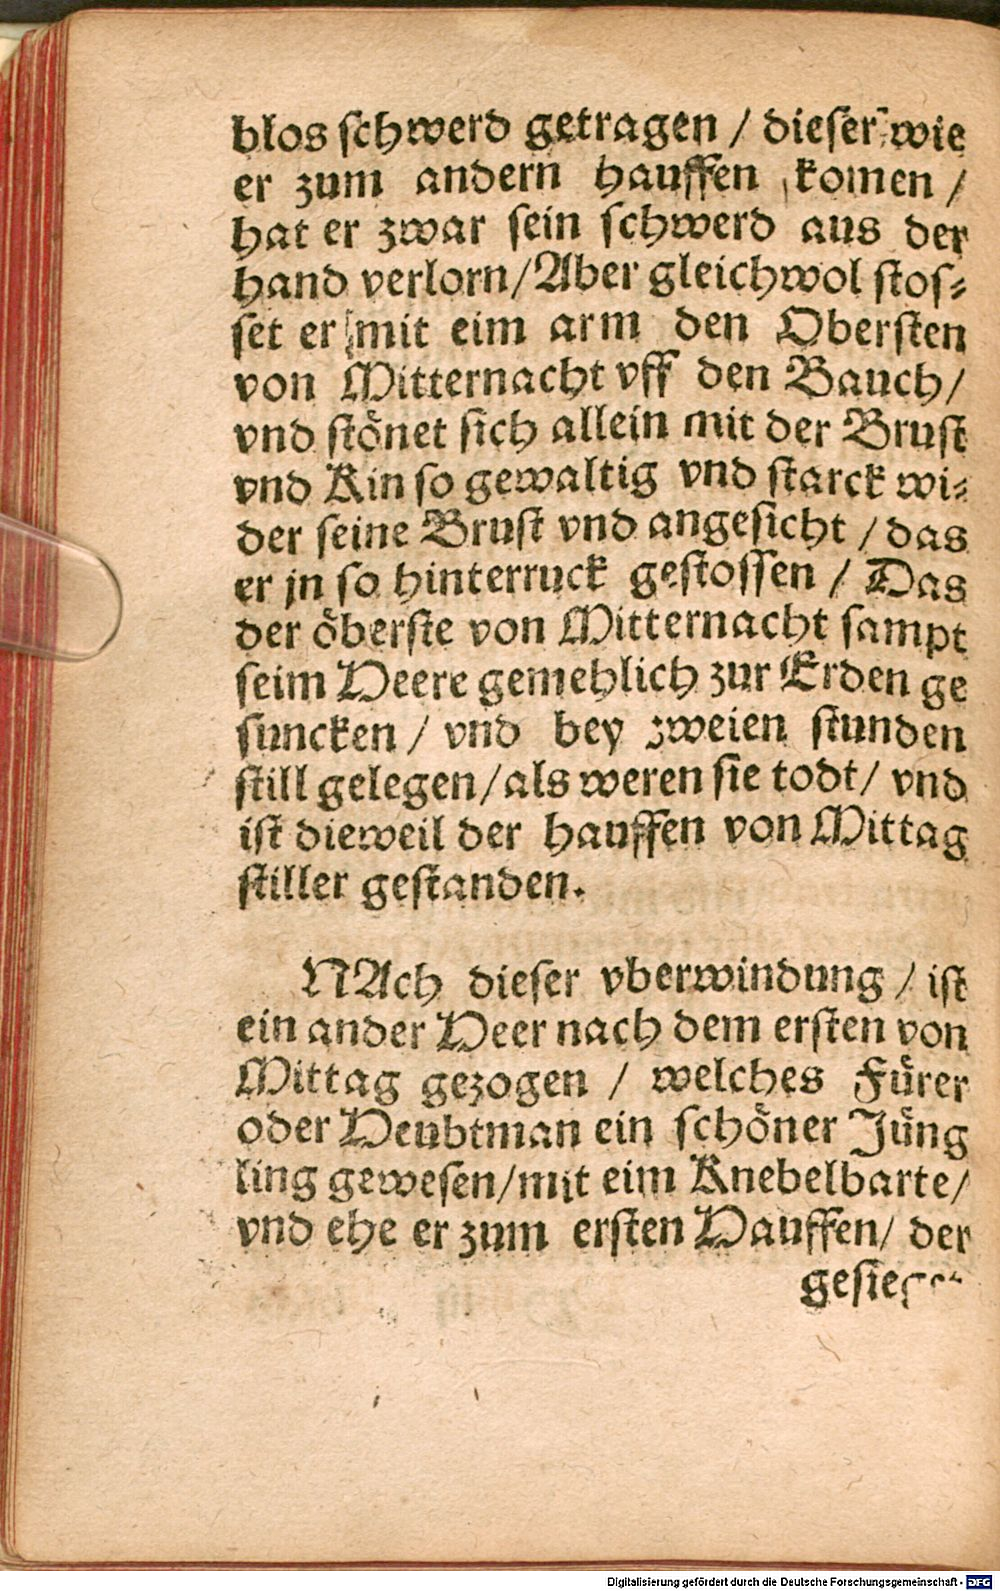 blos schwerd getragen / dieser wie
er zum andern hauffen komen /
hat er zwar sein schwerd aus der
hand verlorn / Aber gleichwol stos⸗
set er mit eim arm den Obersten
von Mitternacht vff den Bauch /
vnd stönet sich allein mit der Brust
vnd Kin so gewaltig vnd starck wi⸗
der seine Brust vnd angesicht / das
er jn so hinterruck gestossen / Das
der öberste von Mitternacht sampt
seim Heere gemehlich zur Erden ge
suncken / vnd bey zweien stunden
still gelegen / als weren sie todt / vnd
ist dieweil der hauffen von Mittag
stiller gestanden.
NAch dieser vberwindung / ist
ein ander Heer nach dem ersten von
Mittag gezogen / welches Fürer
oder Heubtman ein schöner Jüng
ling gewesen / mit eim Knebelbarte /
vnd ehe er zum ersten Hauffen / der
Digitalisierung gefördert durch die Deutsche Forschungsgemeinschaft - DFG